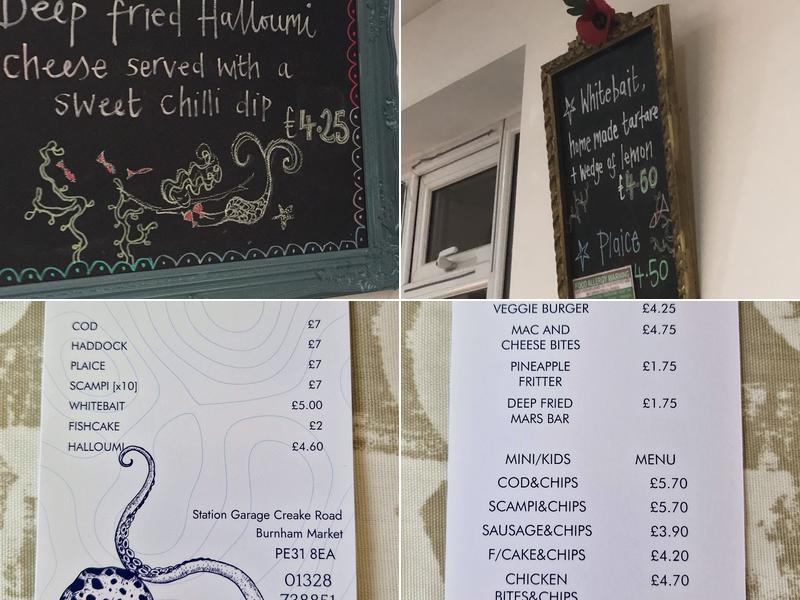 Deep fried Halloumi
cheese served with a
sweet chilli dip
£4.25
Whitebait,
home made tartare
+ wedge of lemon
£4.60
Plaice
FOOD ALLERGY WARNING
4.50
COD £7
HADDOCK £7
PLAICE £7
SCAMPI [x10] £7
WHITEBAIT £5.00
FISHCAKE £2
HALLOUMI £4.60
Station Garage Creake Road
Burnham Market
PE31 8EA
01328
738851
VEGGIE BURGER £4.25
MAC AND £4.75
CHEESE BITES
PINEAPPLE £1.75
FRITTER
DEEP FRIED £1.75
MARS BAR
MINI/KIDS MENU
COD&CHIPS £5.70
SCAMPI&CHIPS £5.70
SAUSAGE&CHIPS £3.90
F/CAKE&CHIPS £4.20
CHICKEN £4.70
BITES&CHIPS